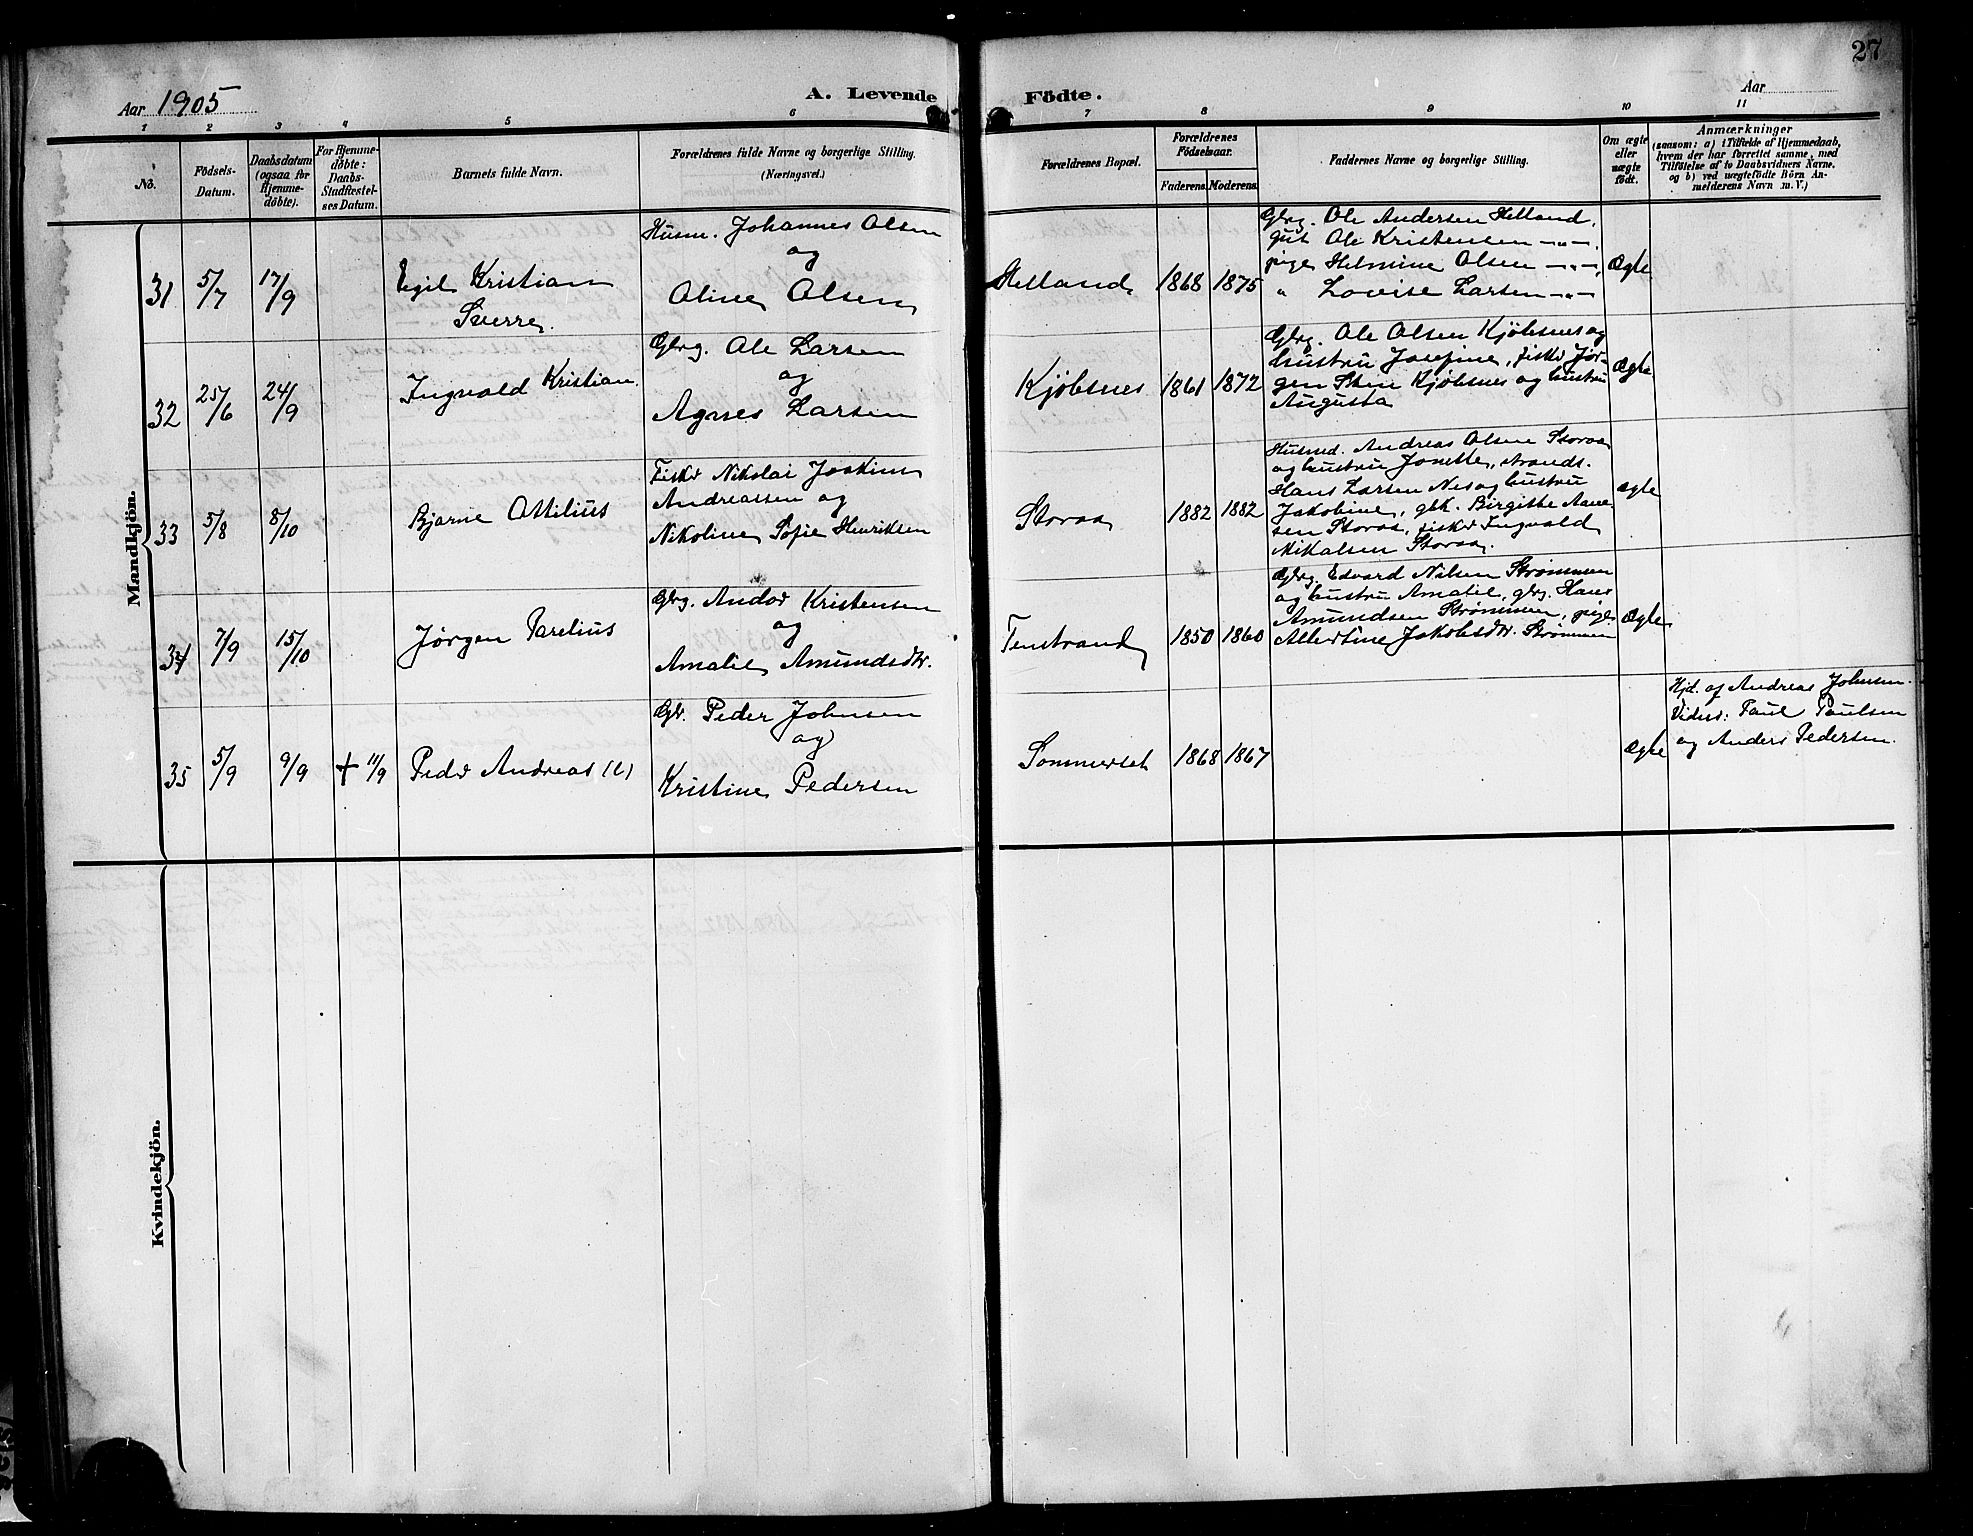 27
Aar 1905
A. Levende Födte.
Aar
1 2 3 4 5 6 7 8 9 10 11
No.
Födsels-
Datum.
Daabsdatum
(ogsaa for
Hjemme-
döbte).
For Hjemme-
döbte:
Daabs-
Stadfæstel-
ses Datum.
Barnets fulde Navn.
Forældrenes fulde Navne og borgerlige Stilling.
(Næringsvei.)
Forældrenes Bopæl.
Forældrenes
Födselsaar.
Faderens. Moderens.
Faddernes Navne og borgerlige Stilling.
Om ægte
eller
uægte
födt.
Anmærkninger
(saasom: a) i Tilfælde af Hjemmedaab,
hvem der har forrettet samme, med
Tilföielse af to Daabsvidners Navne,
og b) ved uægtefödte Börn An-
melderens Navn m. V.)
Mandkjön.
31 5/7 17/9
Egil Kristian
Sverre
Husm. Johannes Olsen
og
Oline Olsen
Helland 1868 1875
Gbrg. Ole Andersen Helland,
gut Ole Kristensen —„—,
pige Helmine Olsen —„—,
„ Lovise Larsen —„—
Ægte
32 25/6 24/9
Ingvald Kristian
Gbrg. Ole Larsen
og
Agnes Larsen
Kjöbsnes 1861 1872
Gbrg. Ole Olsen Kjöbsnes og
hustru Josefine, fisker Jör-
gen Steen Kjöbsnes og hustru
Augusta
Ægte
33 5/8 8/10
Bjarne Ottilius
Fisker Nikolai Joakim
Andreassen og
Nikoline Sofie Henriksen
Storaa 1882 1882
Husmd. Andreas Olsen Storaa
og hustru Jonette, strands.
Hans Larsen Nes og hustru
Jakobine, gbk. Birgithe Aane
sen Storaa, fisker Ingvald
Mikalsen Storaa.
Ægte
34 7/9 15/10
Jørgen Parelius
Gbrg. Andor Kristensen
og
Amalie Amundsdtr.
Tenstrand 1850 1860
Gbrg. Edvard Nilsen Strømmen
og hustru Amalie, gbrg. Hans
Amundsen Strømmen, pige
Albertine Jakobsdtr. Strømmen
Ægte
35 5/9 9/9 + 11/9
Peder Andreas (l)
Gbr. Peder Johnsen
og
Kristine Pedersen
Sommerset 1868 1867
Ægte
Hjd. af Andreas Johnsen.
Vidner: Paul Paulsen
og Anders Pedersen.
Kvindekjön.